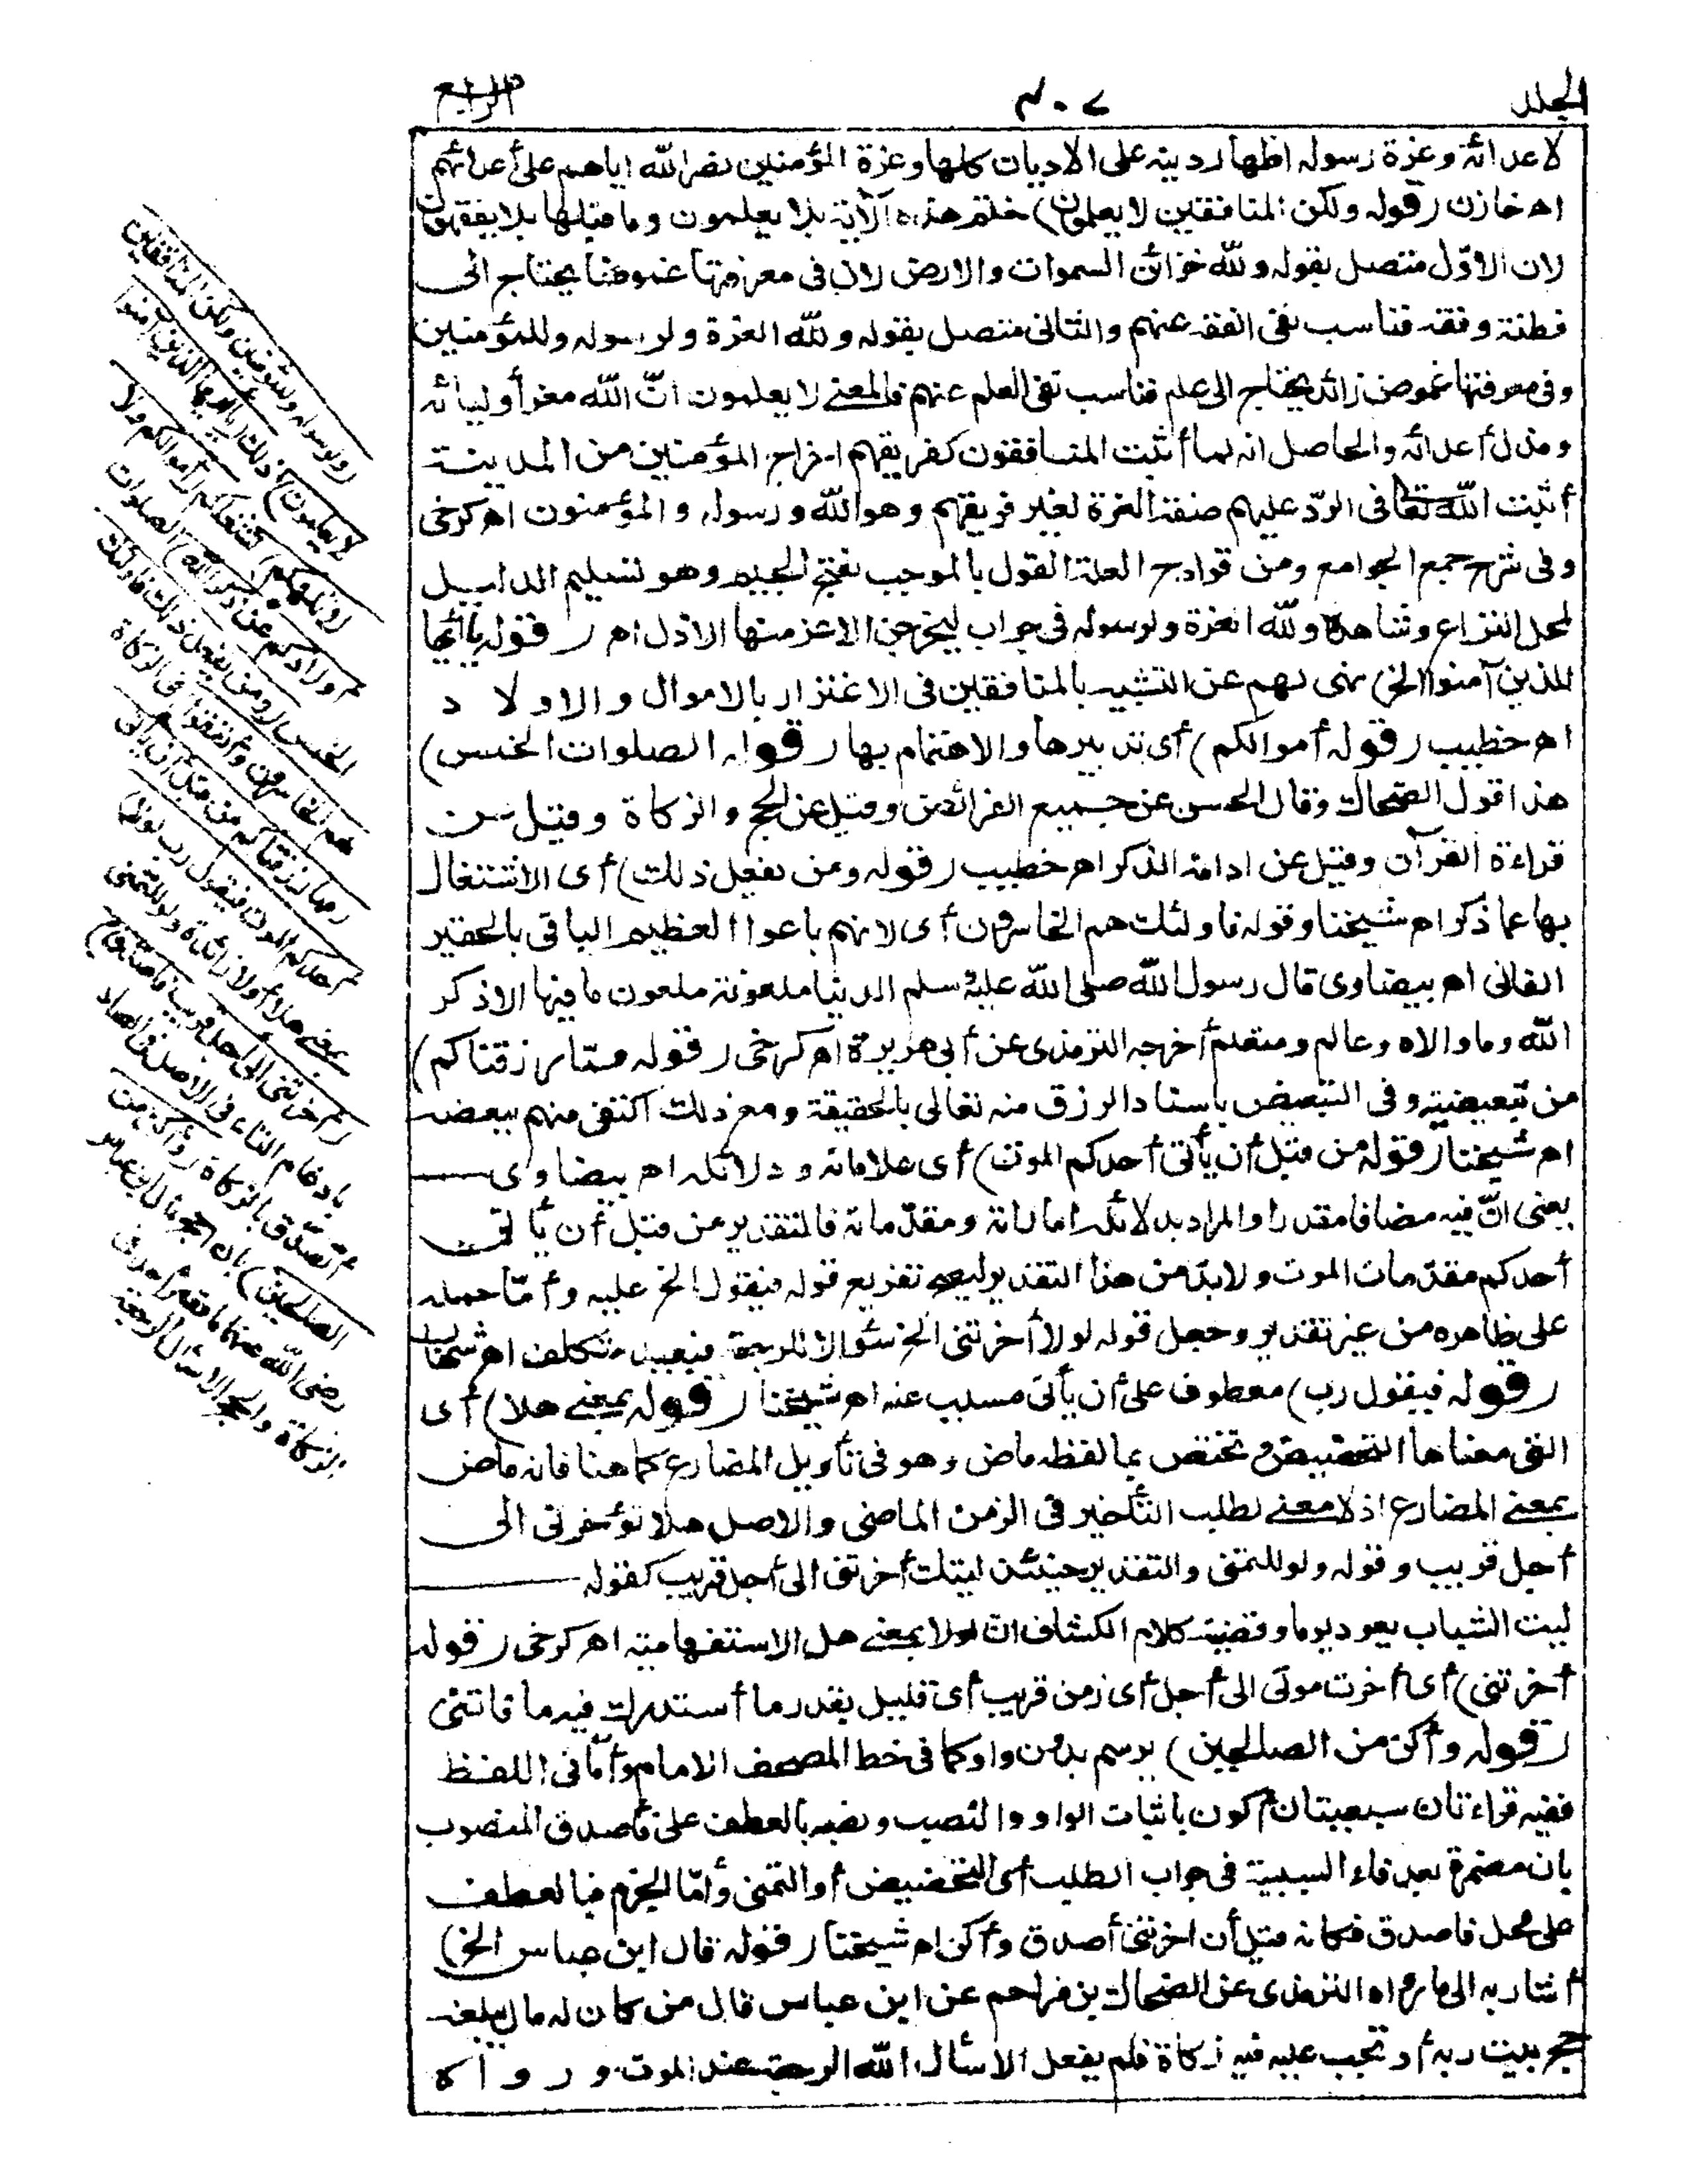 المجلد ٤٠٧ الرابع
لاعدائه وعزة رسوله اظهار دينه على الاديان كلها وعزة المؤمنين نصر الله اياهم على أعدائهم
اه خازن (قوله ولكن المنافقين لا يعلمون) ختم هذه الآية بلا يعلمون وما قبلها بلا يفقهون
لان الاوّل متصل بقوله ولله خزائن السموات والارض لان فى معرفتها غموضا يحتاج الى
فطنة وفقه فناسب نفى الفقه عنهم والثانى متصل بقوله ولله العزة ولرسوله وللمؤمنين
وفى معرفتها غموض زائد يحتاج الى علم فناسب نفى العلم عنهم فالمعنى لا يعلمون انّ الله معز أوليائه
ومذل أعدائه والحاصل انه لما أثبت المنافقون كفريقهم اخراج المؤمنين من المدينة
أثبت الله تعالى فى الردّ عليهم صفة العزة لغير فريقهم وهو الله ورسوله والمؤمنون اه كرخى
وفى شرح جمع الجوامع ومن قوادح العلة القول بالموجب بفتح الجيم وهو تسليم الدليل
لمحل النزاع وشاهده ولله العزة ولرسوله فى جواب ليخرجن الاعز منها الاذل اه (قوله يا أيها
الذين آمنوا الخ) نهى لهم عن التشبيه بالمنافقين فى الاغترار بالاموال والاولاد
اه خطيب (قوله أموالكم) أى تدبيرها والاهتمام بها (قوله الصلوات الخمس)
هذا قول الضحاك وقال الحسن عن جميع الفرائض وقيل عن الحج والزكاة وقيل عن
قراءة القرآن وقيل عن ادامة الذكر اه خطيب (قوله ومن يفعل ذلك) أى الاشتغال
بها عما ذكر اه شيخنا وقوله فاولئك هم الخاسرون أى لانهم باعوا العظيم الباقى بالحقير
الفانى اه بيضاوى قال رسول الله صلى الله عليه وسلم الدنيا ملعونة ملعون ما فيها الا ذكر
الله وما والاه وعالم ومتعلم أخرجه الترمذى عن أبى هريرة اه كرخى (قوله ممّا رزقناكم)
من تبعيضية وفى التبعيض باسناد الرزق منه تعالى بالحقيقة ومع ذلك اكتفى منهم ببعضه
اه شيخنا (قوله من قبل أن يأتى أحدكم الموت) أى علاماته ودلائله اه بيضاوى
يعنى انّ فيه مضافا مقدرا والمراد بدلائله اماراته ومقدّماته فالتقدير من قبل أن يأتى
أحدكم مقدّمات الموت ولابدّ من هذا التقدير ليصح تفريع قوله فيقول الخ عليه وأمّا حمله
على ظاهره من غير تقدير وجعل قوله لولا أخرتنى الخ سؤالا للرجعة فبعيد متكلف اه شهاب
(قوله فيقول رب) معطوف على أن يأتى مسبب عنه اه شيخنا (قوله بمعنى هلا) أى
التى معناها التحضيض وتختص بما لفظه ماض وهو فى تأويل المضارع كما هنا فانه ماض
بمعنى المضارع اذ لا معنى لطلب التأخير فى الزمن الماضى والاصل هلا تؤخرنى الى
أجل قريب وقوله ولو للتمنى والتقدير حينئذ ليتك أخرتنى الى أجل قريب كقوله
ليت الشباب يعود يوما وقضية كلام الكشاف انّ لولا بمعنى هل الاستفهامية اه كرخى (قوله
أخرتنى) أى أخرت موتى الى أجل أى زمن قريب أى قليل بقدر ما أستدرك فيه ما فاتنى
(قوله وأكن من الصالحين) يرسم بدون واو كما فى خط المصحف الامام وأمّا فى اللفظ
ففيه قراءتان سبعيتان أكون باثبات الواو والنصيب ونصبه بالعطف على فأصدق المنصوب
بان مضمرة بعد فاء السببية فى جواب الطلب أى التحضيض أو التمنى وأمّا الجزم فبالعطف
على محل فاصدق فكانه قيل أن اخرتنى أصدق وأكن اه شيخنا (قوله قال ابن عباس الخ)
أشار به الى ما رواه الترمذى عن الضحاك بن مزاحم عن ابن عباس قال من كان له مال يبلغه
حج بيت ربه أو تجب عليه فيه زكاة فلم يفعل الا سأل الله الرجعة عند الموت ورواه
ولرسوله وللمؤمنين ولكن المنافقين
لا يعلمون) ذلك (يا أيها الذين آمنوا
لا تلهكم) تشغلكم (أموالكم ولا
أولادكم عن ذكر الله) الصلوات
الخمس (ومن يفعل ذلك فاولئك
هم الخاسرون وأنفقوا) فى الزكاة
(مما رزقناكم من قبل أن يأتى
أحدكم الموت فيقول رب لولا)
بمعنى هلا أو لا زائدة ولو للتمنى
(أخرتنى الى أجل قريب فأصدّق)
بادغام التاء فى الاصل فى الصاد
أتصدّق بالزكاة (وأكن من
الصالحين) بان أحج قال ابن عباس
رضى الله عنهما ما قصر أحد فى
الزكاة والحج الا سأل الرجعة